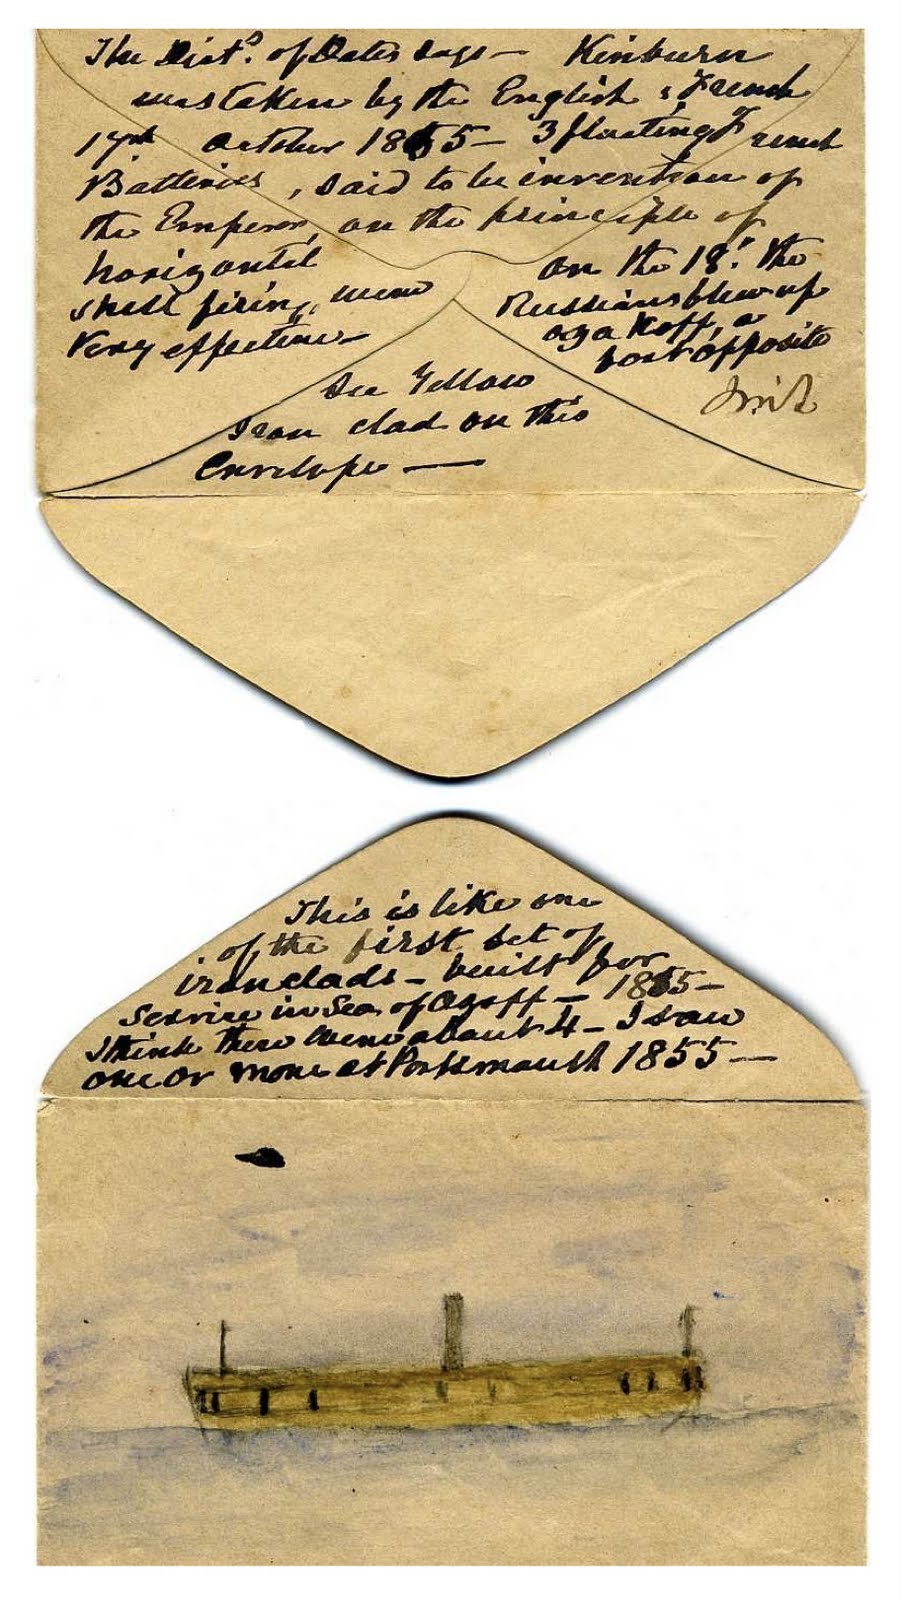 The Dict.y of Dates says — Kinburn
was taken by the English & French
17th October 1855 — 3 floating French
Batteries, said to be invention of
the Emperor, on the principle of
horizontal
shell firing, were
very effective —
on the 18th. the
Russians blew up
Oczakoff, a
fort opposite
See Yellow
Iron clad on this
Envelope —
This is like one
of the first set of
ironclads — built for
Service in Sea of Azoff — 1855 —
I think there were about 4 — I saw
one or more at Portsmouth 1855 —